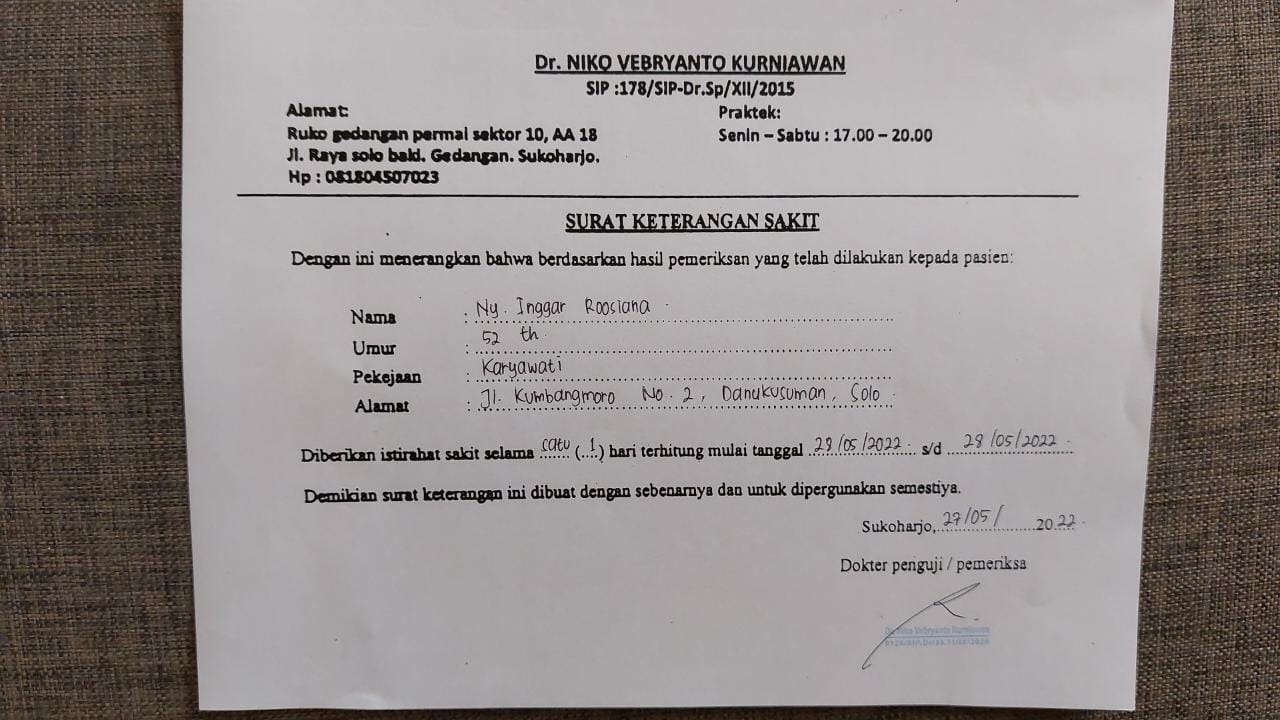 Dr. NIKO VEBRYANTO KURNIAWAN
SIP :178/SIP-Dr.Sp/XII/2015
Alamat:
Praktek:
Ruko gedangan permai sektor 10, AA 18
Senin – Sabtu : 17.00 – 20.00
Jl. Raya solo baki. Gedangan. Sukoharjo.
Hp : 081804507023
SURAT KETERANGAN SAKIT
Dengan ini menerangkan bahwa berdasarkan hasil pemeriksan yang telah dilakukan kepada pasien:
Nama : Ny. Inggar Roosiana
Umur : 52 th.
Pekejaan : Karyawati
Alamat : Jl. Kumbangmoro No. 2, Danukusuman, Solo.
Diberikan istirahat sakit selama satu (1) hari terhitung mulai tanggal 28/05/2022. s/d 28/05/2022.
Demikian surat keterangan ini dibuat dengan sebenarnya dan untuk dipergunakan semestiya.
Sukoharjo, 27/05/ 2022.
Dokter penguji / pemeriksa
Dr. Niko Vebryanto Kurniawan